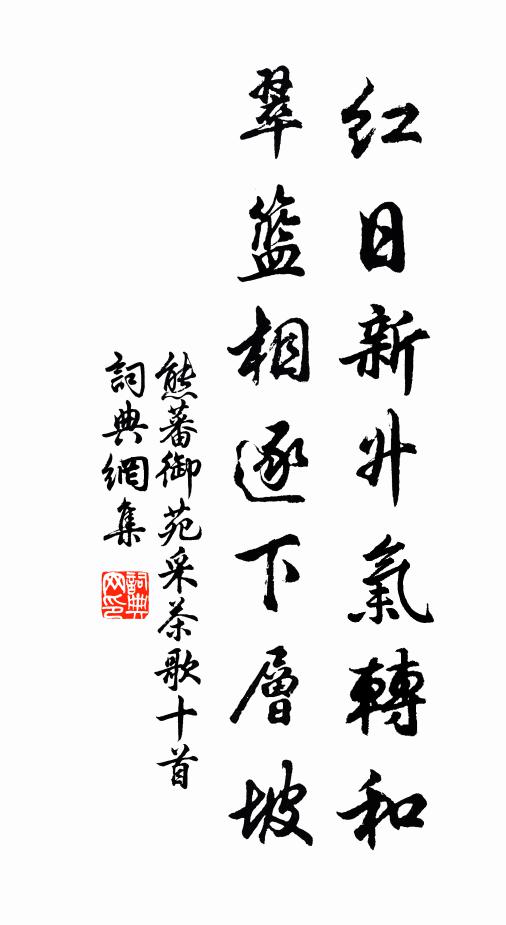 紅日新升氣轉和
翠籃相逐下層坡
熊蕃御苑采茶歌十首
詞典網集
詞典
网印